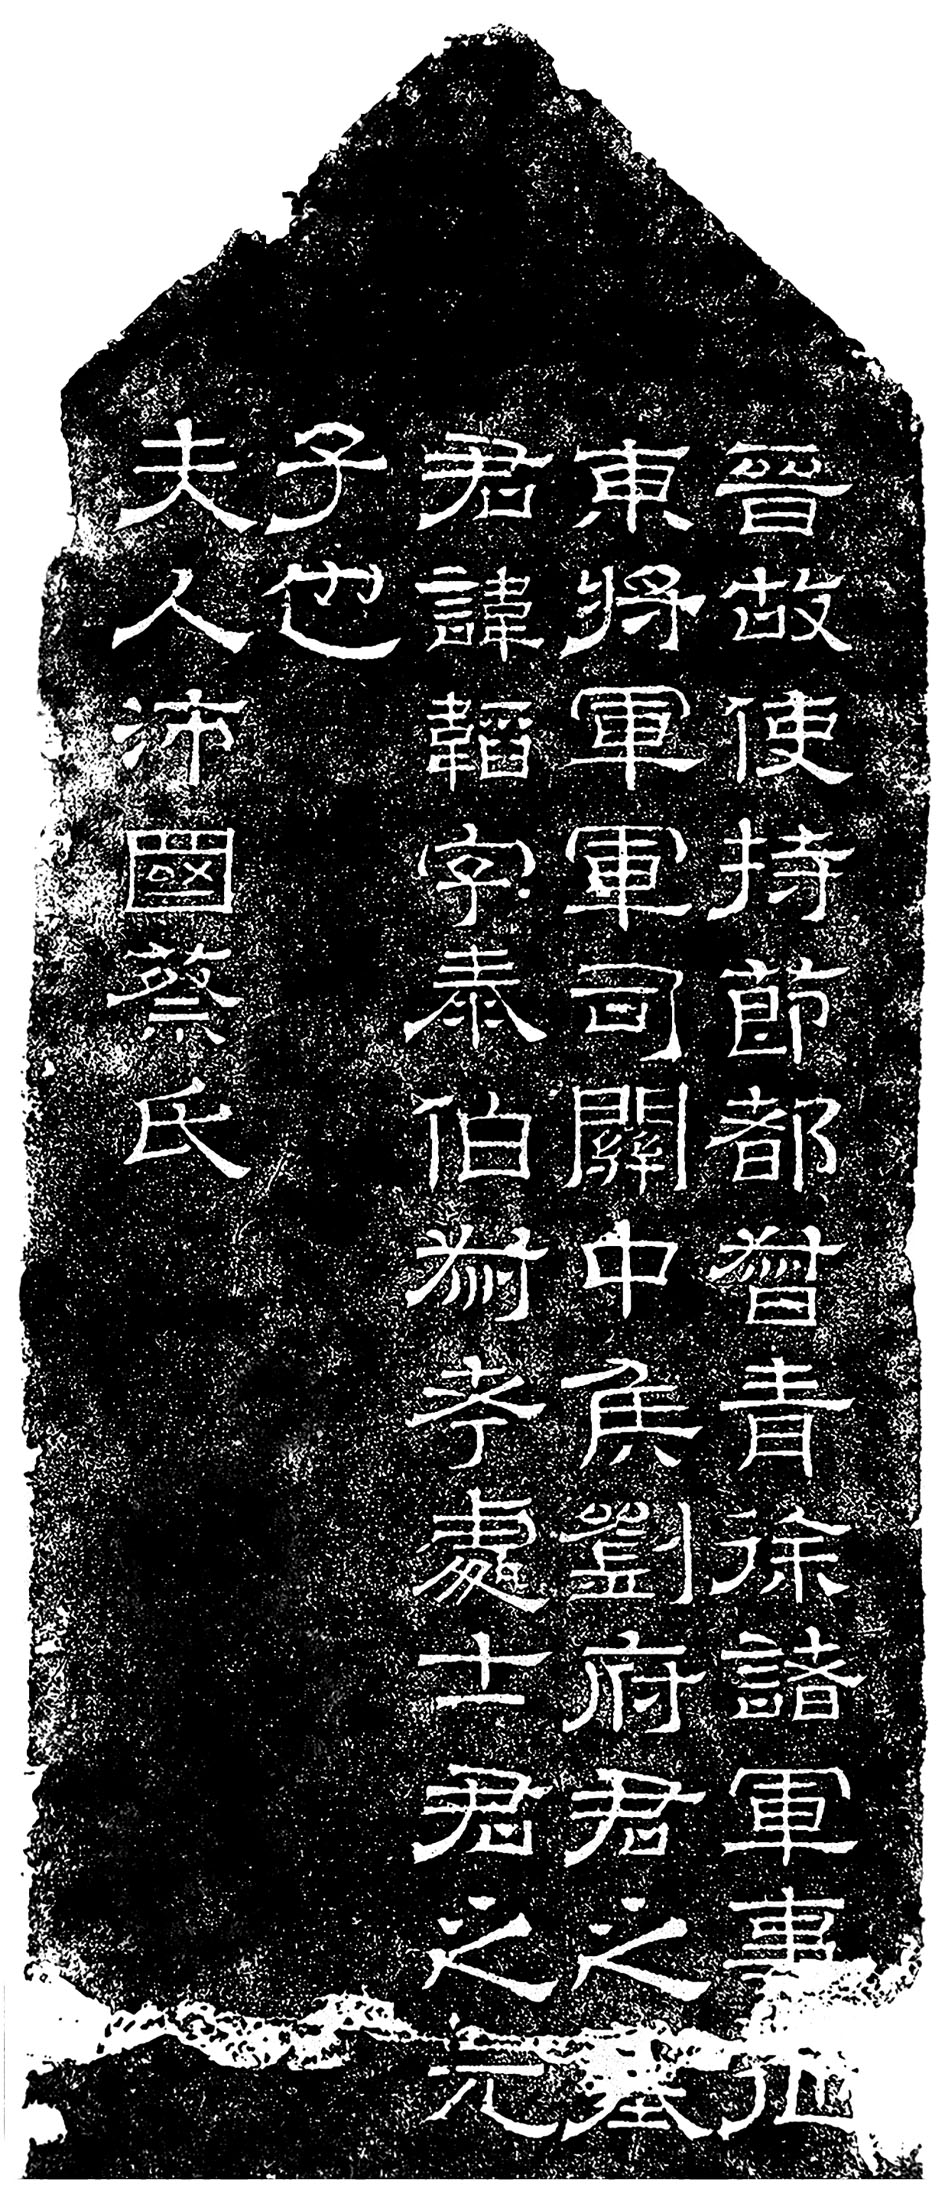 晉故使持節都督青徐諸軍事征
東將軍軍司關中侯劉府君之墓
君諱韜字泰伯叔考處士君之元
子也
夫人沛國蔡氏